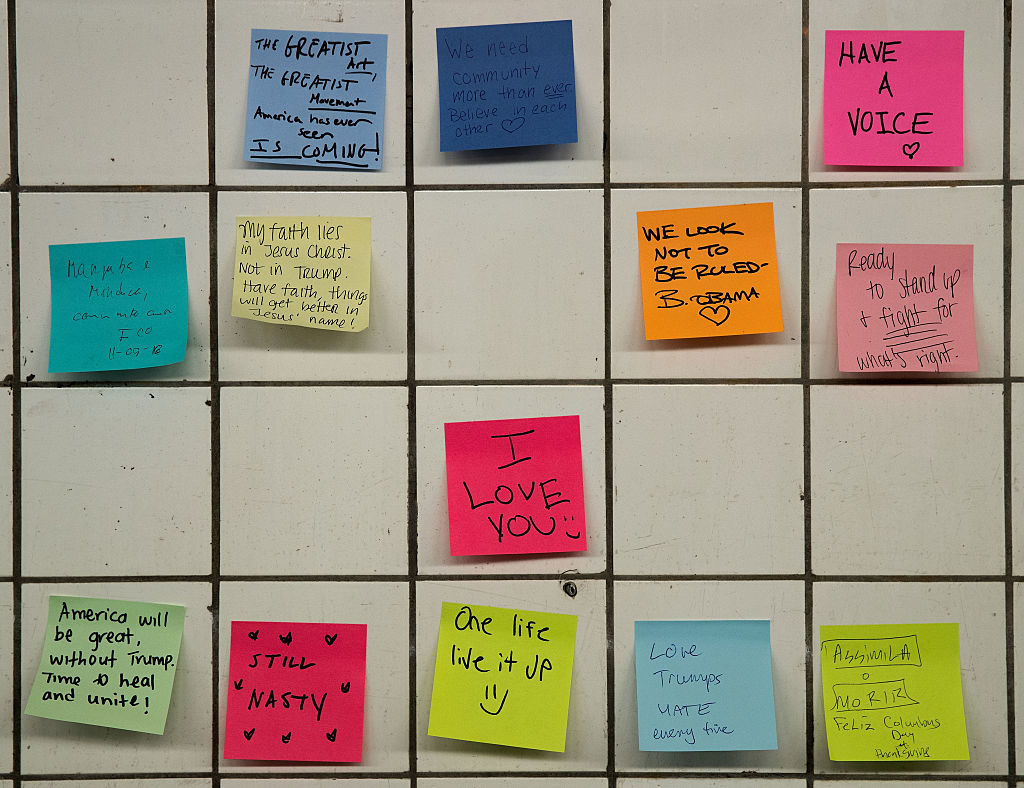 THE GREATIST
Art,
THE GREATIST
Movement
America has ever
seen
IS COMING!
We need
community
more than ever.
Believe in each
other
HAVE
A
VOICE
11-09-16
My faith lies
in Jesus Christ.
Not in Trump.
Have faith, things
will get better in
Jesus' name!
WE LOOK
NOT TO
BE RULED-
B. OBAMA
Ready
to stand up
+ fight for
what's right.
I
LOVE
YOU
America will
be great,
without Trump.
Time to heal
and unite!
STILL
NASTY
One life
live it up
Love
Trumps
HATE
every time
ASSIMILA
O
MORIR
FELIZ Columbus
Day